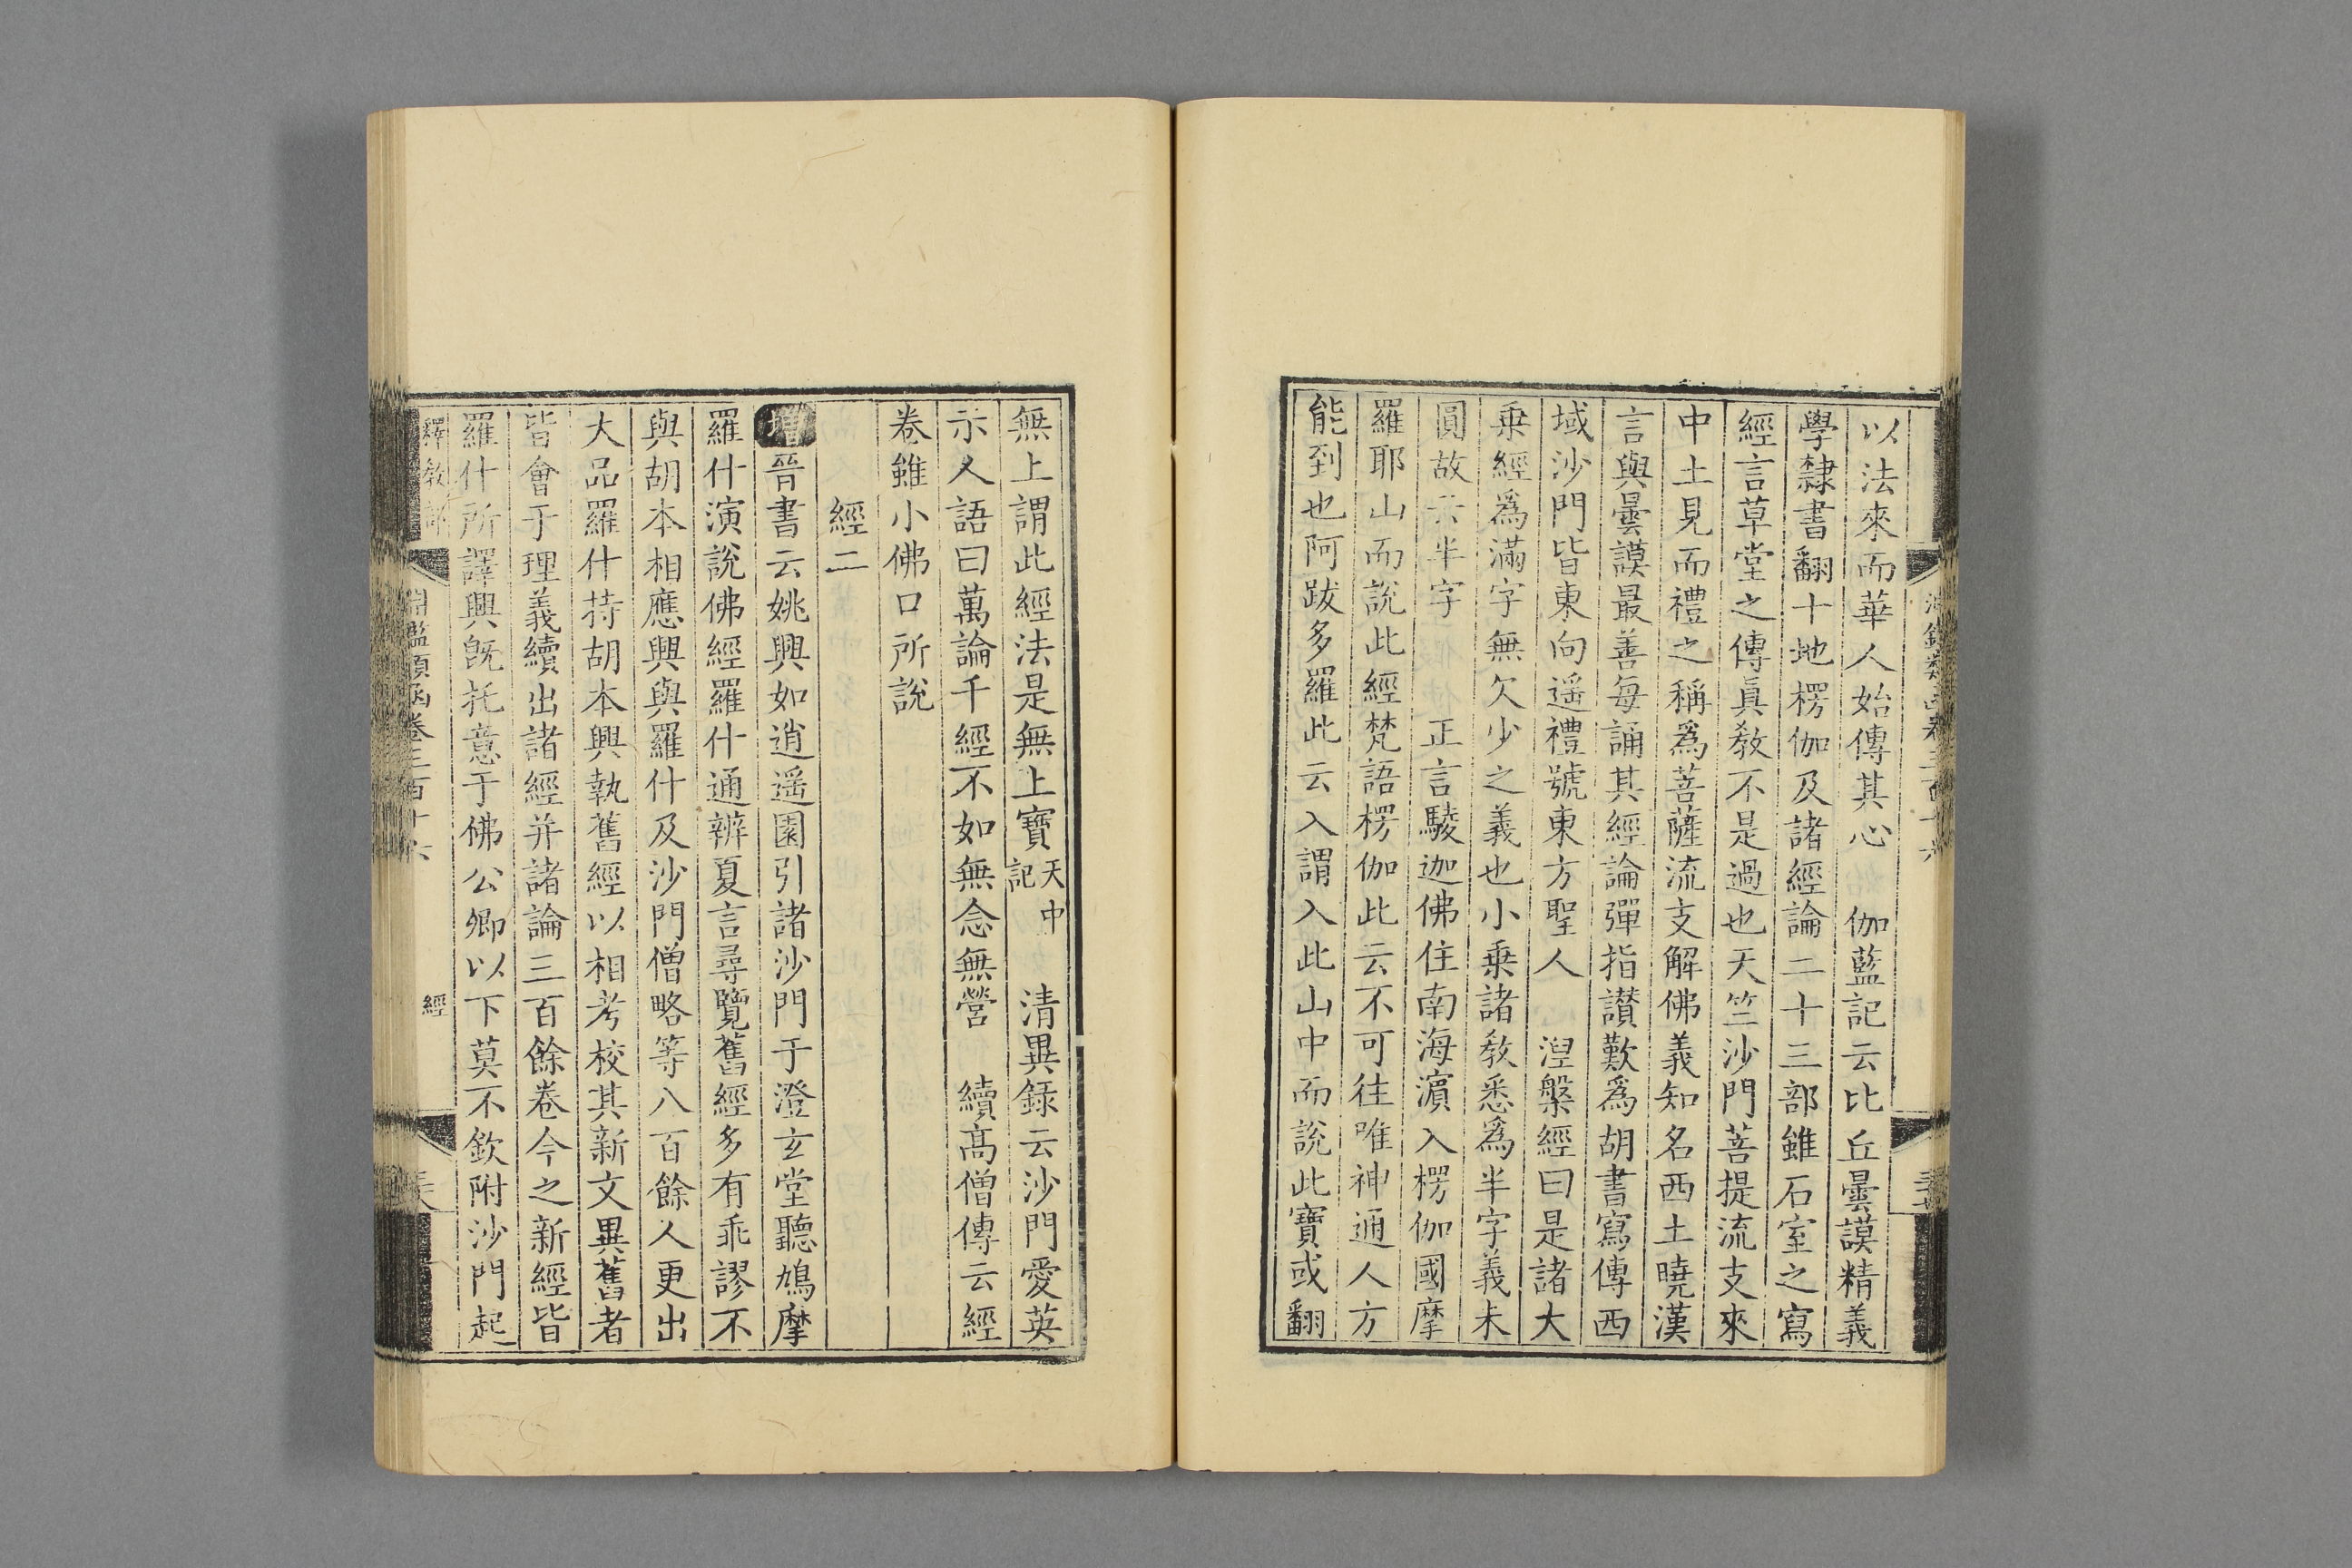 以法來而華人始傳其心　伽藍記云比丘曇謨精義
學隸書翻十地楞伽及諸經論二十三部雖石室之寫
經言草堂之傳眞敎不是過也天竺沙門菩提流支來
中土見而禮之稱爲菩薩流支解佛義知名西土曉漢
言與曇謨最善每誦其經論彈指讃歎爲胡書寫傳西
域沙門皆東向遥禮號東方聖人　湼槃經曰是諸大
乗經爲滿字無欠少之義也小乗諸敎悉爲半字義未
圓故云半字　　正言駿迦佛住南海濵入楞伽國摩
羅耶山而說此經梵語楞伽此云不可往唯神通人方
能到也阿跋多羅此云入謂入此山中而說此寶或翻
無上謂此經法是無上寶天中記　清異録云沙門愛英
示人語曰萬論千經不如無念無營　續髙僧傳云經
卷雖小佛口所說
經二
增晉書云姚興如逍遥園引諸沙門于澄玄堂聽鳩摩
羅什演說佛經羅什通辨夏言尋覽舊經多有乖謬不
與胡本相應興與羅什及沙門僧略等八百餘人更出
大品羅什持胡本興執舊經以相考校其新文異舊者
皆會于理義續出諸經并諸論三百餘卷今之新經皆
羅什所譯興旣托意于佛公卿以下莫不欽附沙門起
釋敎部
淵鑑類函卷三百十六
經